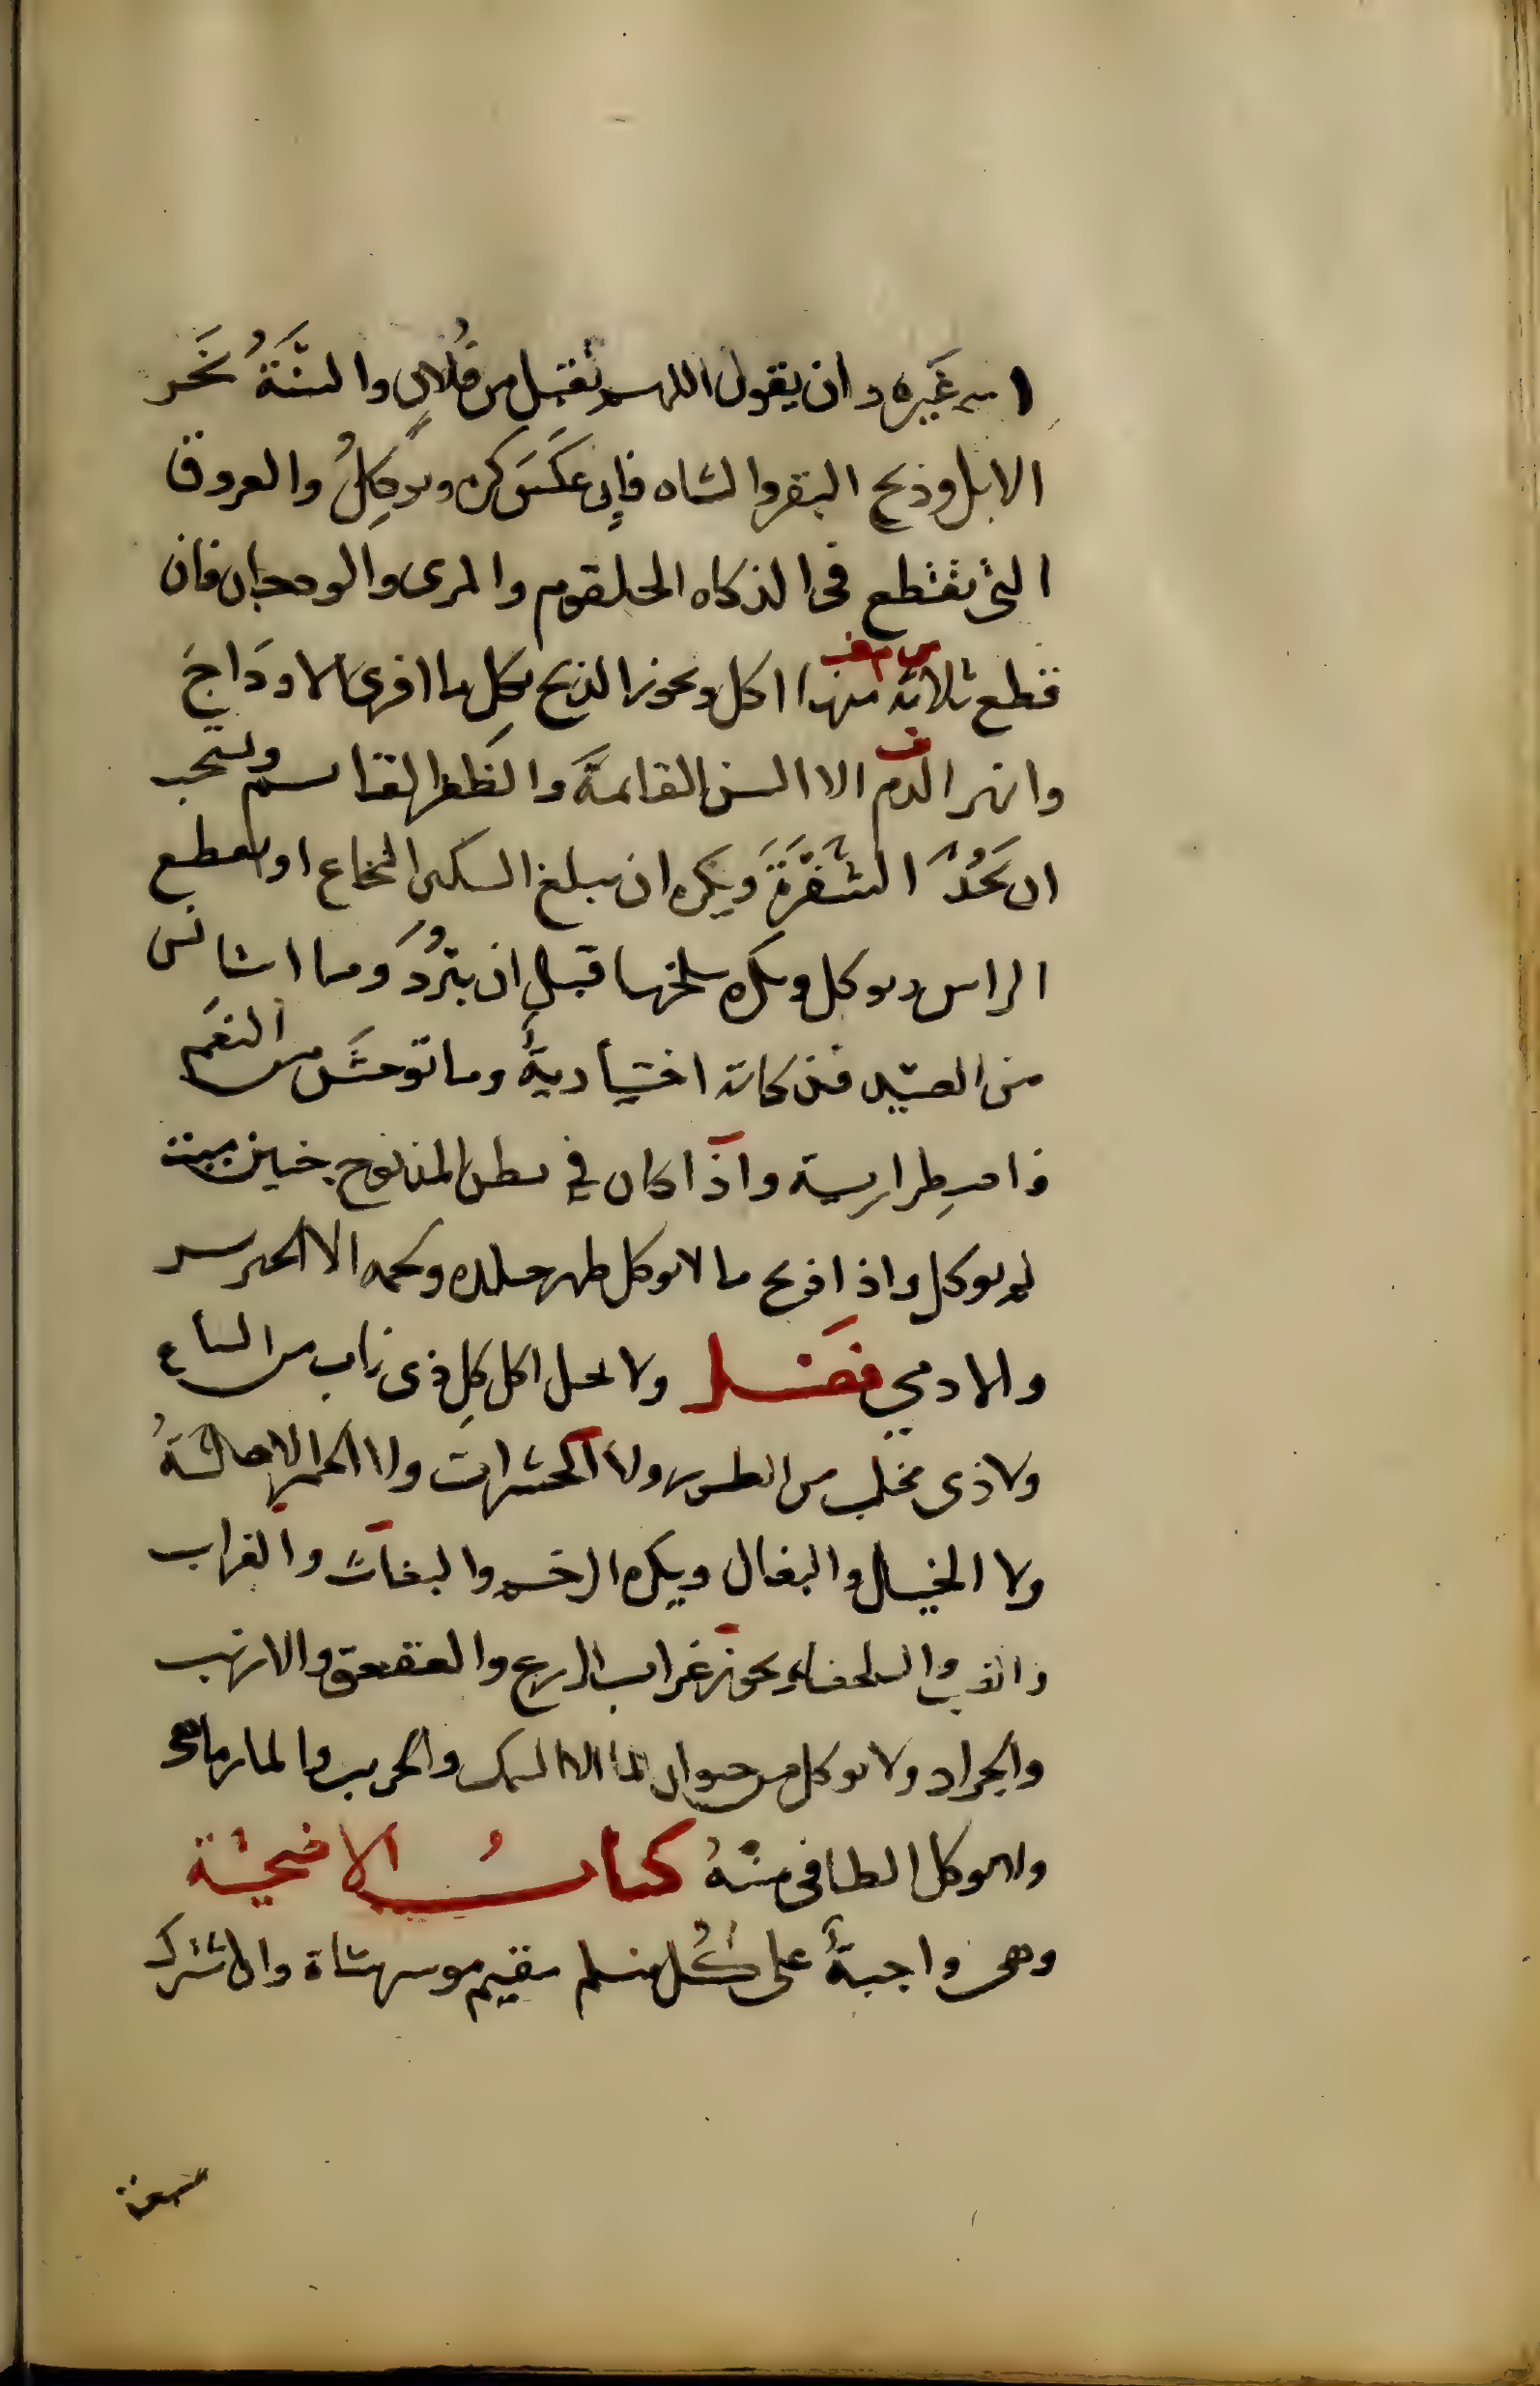 اسم غيره وان يقول اللهم تقبل من فلان والسُّنَّةُ نَحر
الابل وذبح البقر والشاه فإن عكَسَ كره ويوكلُ والعروق
التى تقطع فى الذكاه الحلقوم والمرى والودجان فان
قطع ثلاثه منها اكل ويجوز الذبح بكل ما افرى الاودَاجَ
وانهر الدم الا السن القائمةَ والظفر القائم ويستحب
ان يَحُدَّ الشَّفْرَةَ ويكره ان يبلغ السكين النخاع او يقطع
الراس ويوكل ويكره سلخها قبل ان يبرُدَ وما استانس
من الصيد فذكاته اختياريةٌ وما توحشَ من النعَم
فاضطرارية واذا كان فى بطن المذبوح جنين ميت
لم يوكل واذا ذبح ما لا يوكل طهر جلده ولحمه الا الخنزير
والادمي فصَل ولا يحل اكل كلِ ذى ناب من السباع
ولا ذى مخلب من الطير ولا الحشرات ولا الحمر الاهليةُ
ولا الخيل والبغال ويكره الرخم والبغاث والغراب
والضبع والسلحفاه ويجوز غراب الزرع والعقعق والارنب
والجراد ولا يوكل من حيوان الما الا السمك والجريث والمارماهى
ولا يوكل الطافى منهُ كتابُ الاضحية
وهى واجبةٌ على كُل مسلم مقيم موسر شاة وان اشترك